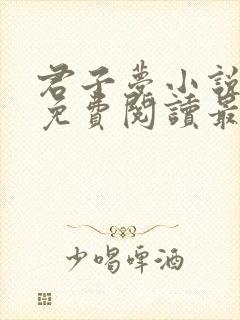 君子夢小說
免費閱讀最
少喝啤酒